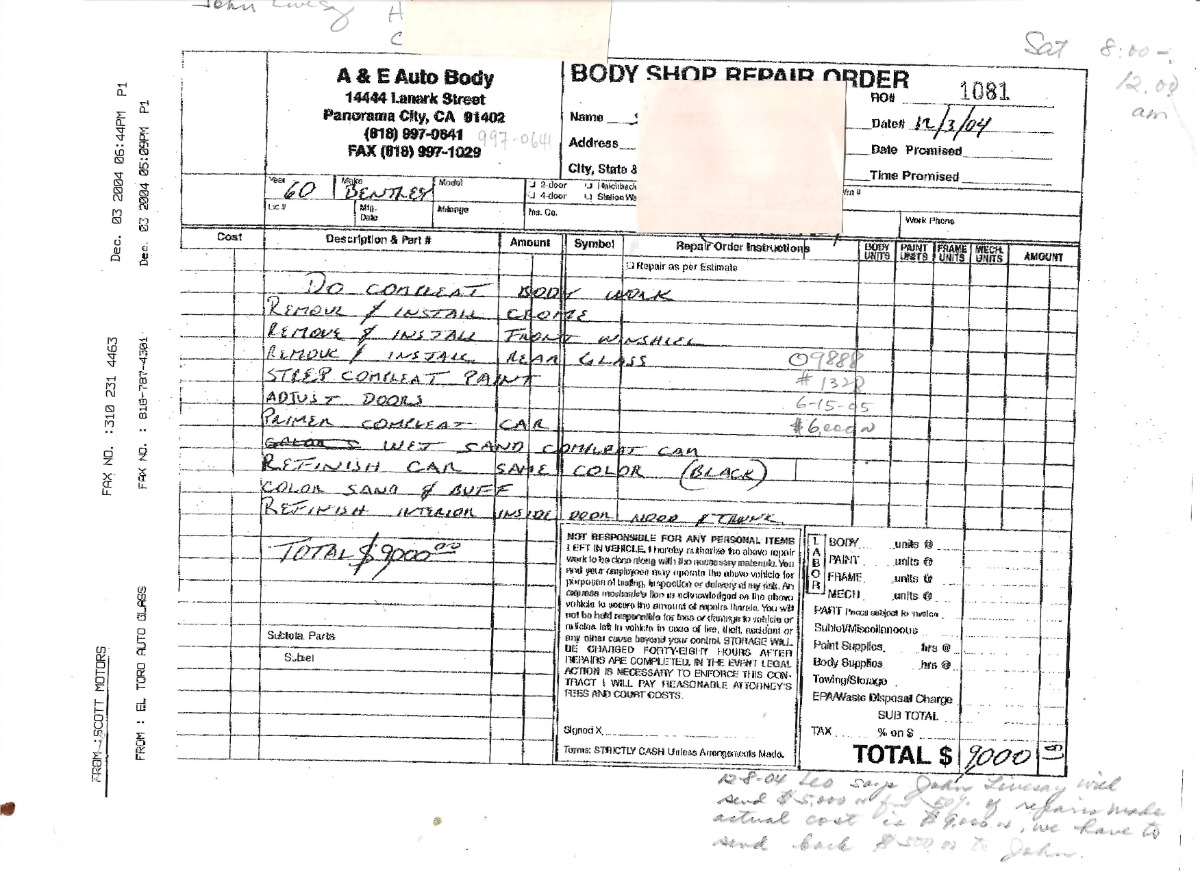 John Livesay H
C
Sat 8:00 -
12.00
am
A & E Auto Body
14444 Lanark Street
Panorama City, CA 91402
(818) 997-0641 997-0641
FAX (818) 997-1029
BODY SHOP REPAIR ORDER
RO# 1081
Name
Date# 12/3/04
Address
Date Promised
City, State &
Time Promised
Year 60 Make BENTLEY Model
2-door Hatchback
4-door Station Wa
Lic # Mfg. Date Mileage Ins. Co.
Work Phone
Cost Description & Part # Amount Symbol Repair Order Instructions BODY UNITS PAINT UNITS FRAME UNITS MECH. UNITS AMOUNT
Repair as per Estimate
DO COMPLEAT BODY WORK
REMOVE & INSTALL CROME
REMOVE & INSTALL FRONT WINSHIEL
REMOVE & INSTALL REAR GLASS 09888
STREP COMPLEAT PAINT # 1328
ADJUST DOORS 6-15-05
PRIMER COMPLEAT CAR $6,000
WET SAND COMPLEAT CAR
REFINISH CAR SAME COLOR (BLACK)
COLOR SAND & BUFF
REFINISH INTERIOR INSIDE DOOR HOOD & TRUNK
TOTAL $9000.00
Subtotal Parts
Sublet
NOT RESPONSIBLE FOR ANY PERSONAL ITEMS
LEFT IN VEHICLE. I hereby authorize the above repair
work to be done along with the necessary materials. You
and your employees may operate the above vehicle for
purposes of testing, inspection or delivery at my risk. An
express mechanic's lien is acknowledged on the above
vehicle to secure the amount of repairs thereto. You will
not be held responsible for loss or damage to vehicle or
articles left in vehicle in case of fire, theft, accident or
any other cause beyond your control. STORAGE WILL
BE CHARGED FORTY-EIGHT HOURS AFTER
REPAIRS ARE COMPLETED. IN THE EVENT LEGAL
ACTION IS NECESSARY TO ENFORCE THIS CON-
TRACT I WILL PAY REASONABLE ATTORNEY'S
FEES AND COURT COSTS.
Signed X
Terms: STRICTLY CASH Unless Arrangements Made.
LABOR
BODY units @
PAINT units @
FRAME units @
MECH. units @
PART Prices subject to invoice
Sublet/Miscellaneous
Paint Supplies hrs @
Body Supplies hrs @
Towing/Storage
EPA/Waste Disposal Charge
SUB TOTAL
TAX % on $
TOTAL $ 9000
12-8-04 Leo says John Livesay will
send $5,000 for 50% of repairs made
actual cost is $9,000, we have to
send back $500.00 to John.
FROM : SCOTT MOTORS FAX NO. : 310 231 4463 Dec. 03 2004 06:44PM P1
FROM : EL TORO AUTO GLASS FAX NO. : 818-787-4301 Dec. 03 2004 05:09PM P1